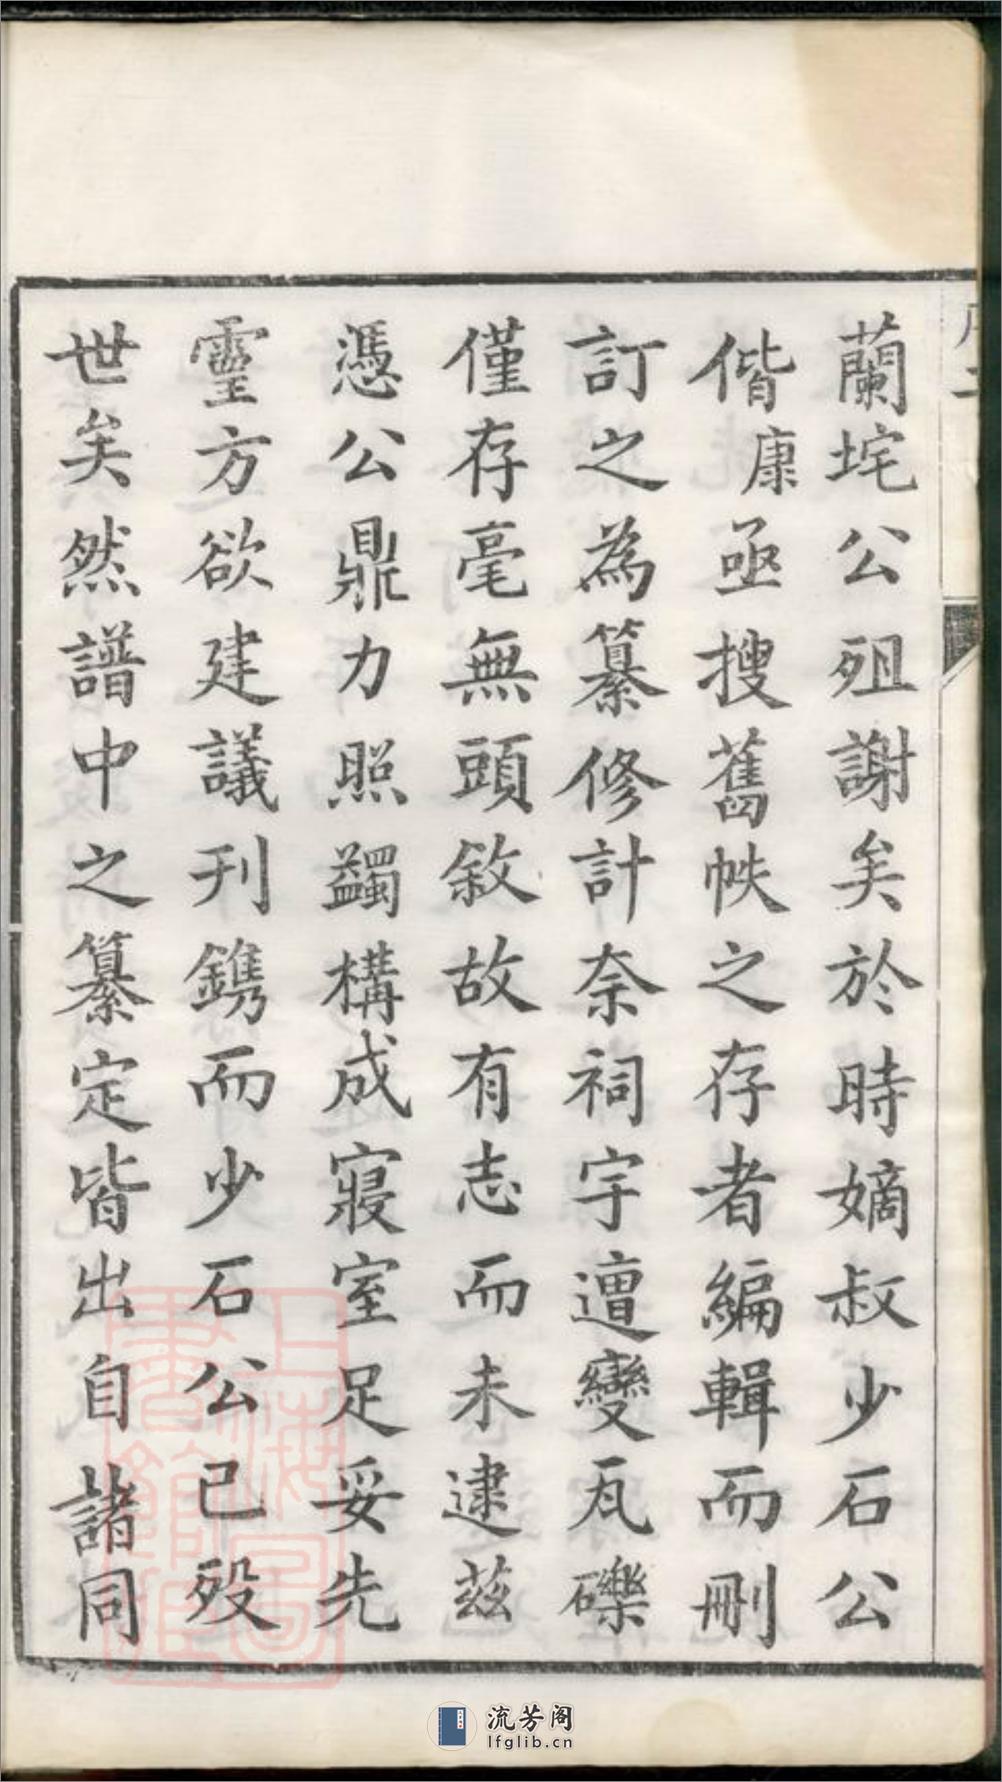 蘭垞公殂謝矣於時嫡叔少石公
偕康亟搜舊帙之存者編輯而刪
訂之為纂修計奈祠宇遭變瓦礫
僅存毫無頭敘故有志而未逮茲
憑公鼎力照蠲構成寢室足妥先
靈方欲建議刊鐫而少石公已歿
世矣然譜中之纂定皆出自諸同
上海圖書館藏
流芳阁
lfglib.cn